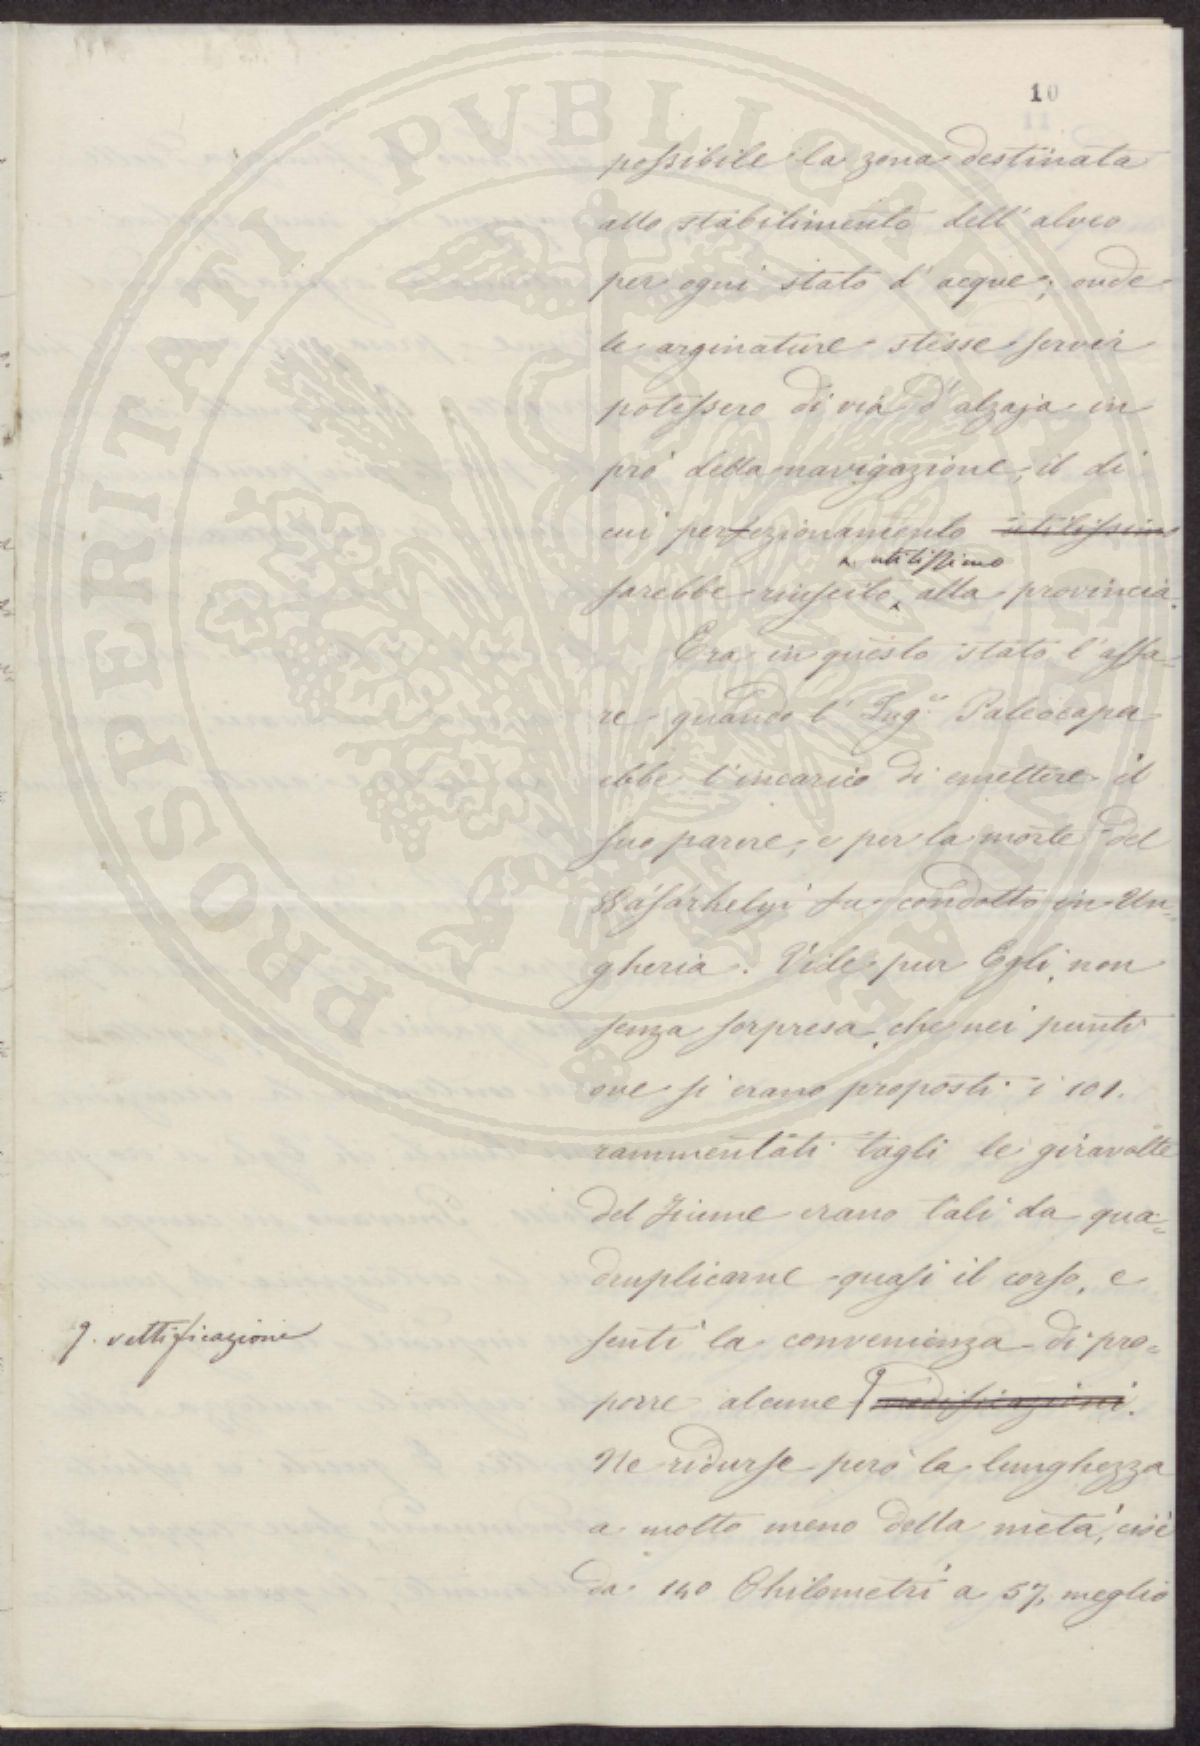 10
possibile la zona destinata
allo stabilimento dell' alveo
per ogni stato d' acque; onde
le arginature stesse servir
potessero di via d' alzaja in
prò della navigazione, il di
cui perfezionamento utilissimo
utilissimo
sarebbe riuscito alla provincia.
Era in questo stato l' affa=
re quando l' Ing.e Paleocapa
ebbe l' incarico di emettere il
suo parere, e per la morte del
Wásárhelyi fu condotto in Un=
gheria. Vide pur Egli, non
senza sorpresa, che nei punti
ove si erano proposti i 101.
rammentati tagli le giravolte
del fiume erano tali da qua=
druplicarne quasi il corso, e
sentì la convenienza di pro=
porre alcune modificazioni.
9. rettificazione
Ne ridusse però la lunghezza
a molto meno della metà, cioè
da 140 Chilometri a 57, meglio
PROSPERITATI PVBLICAE AVGENDAE